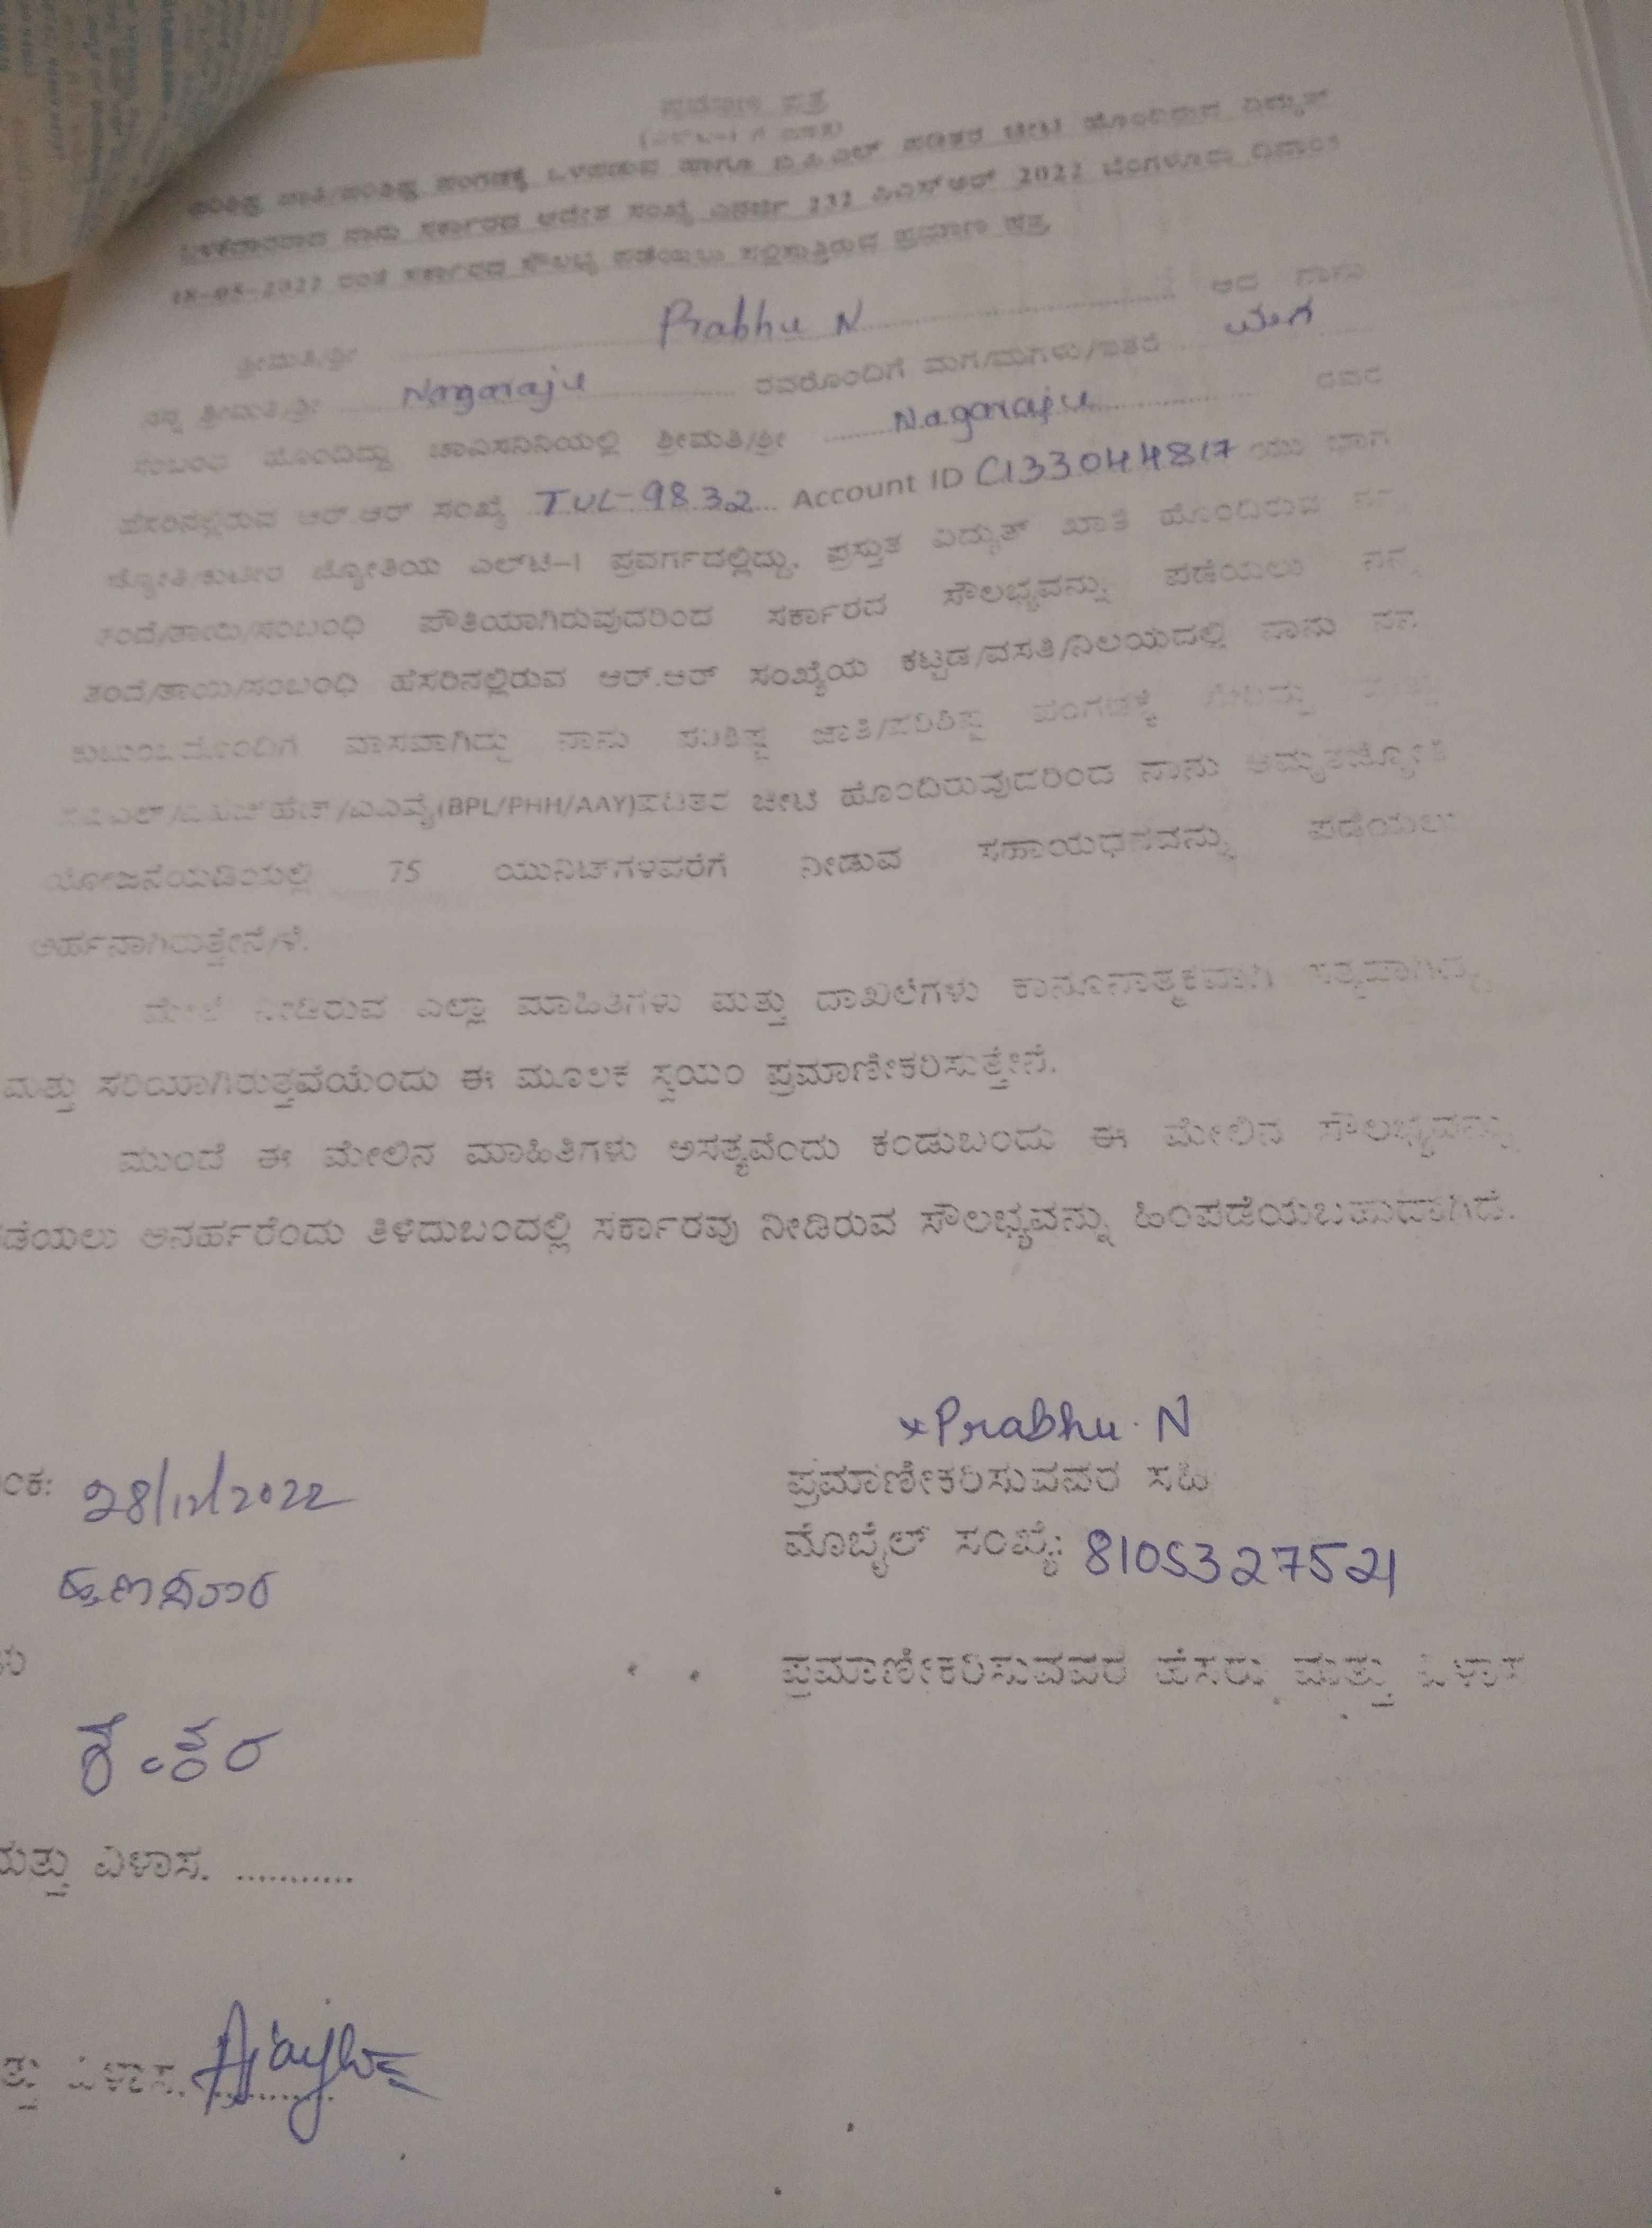 ಪ್ರಮಾಣ ಪತ್ರ
ಪರಿಶಿಷ್ಟ ಜಾತಿ/ಪರಿಶಿಷ್ಟ ಪಂಗಡಕ್ಕೆ ಒಳಪಡುವ ಹಾಗೂ ಬಿ.ಪಿ.ಎಲ್ ಪಡಿತರ ಚೀಟಿ ಹೊಂದಿರುವ ವಿದ್ಯುತ್
ಬಳಕೆದಾರರಾದ ನಾನು ಸರ್ಕಾರದ ಆದೇಶ ಸಂಖ್ಯೆ ಎನರ್ಜಿ 232 ಪಿಎಸ್ಆರ್ 2022 ಬೆಂಗಳೂರು ದಿನಾಂಕ
18-05-2022 ರಂತೆ ಸರ್ಕಾರದ ಸೌಲಭ್ಯ ಪಡೆಯಲು ಸಲ್ಲಿಸುತ್ತಿರುವ ಪ್ರಮಾಣ ಪತ್ರ
ಶ್ರೀಮತಿ/ಶ್ರೀ Prabhu N ಆದ ನಾನು
ನನ್ನ ಶ್ರೀಮತಿ/ಶ್ರೀ Nagaraju ರವರೊಂದಿಗೆ ಮಗ/ಮಗಳು/ಇತರೆ ಮಗ
ಸಂಬಂಧ ಹೊಂದಿದ್ದು ಚಾವಿಸನಿನಿಯಲ್ಲಿ ಶ್ರೀಮತಿ/ಶ್ರೀ Nagaraju ರವರ
ಹೆಸರಿನಲ್ಲಿರುವ ಆರ್.ಆರ್ ಸಂಖ್ಯೆ TUL-9832 Account ID C133044817 ಯು ಭಾಗ್ಯ
ಜ್ಯೋತಿ/ಕುಟೀರ ಜ್ಯೋತಿಯ ಎಲ್‌ಟಿ-1 ಪ್ರವರ್ಗದಲ್ಲಿದ್ದು, ಪ್ರಸ್ತುತ ವಿದ್ಯುತ್ ಖಾತೆ ಹೊಂದಿರುವ ನನ್ನ
ತಂದೆ/ತಾಯಿ/ಸಂಬಂಧಿ ಪೌತಿಯಾಗಿರುವುದರಿಂದ ಸರ್ಕಾರದ ಸೌಲಭ್ಯವನ್ನು ಪಡೆಯಲು ನನ್ನ
ತಂದೆ/ತಾಯಿ/ಸಂಬಂಧಿ ಹೆಸರಿನಲ್ಲಿರುವ ಆರ್.ಆರ್ ಸಂಖ್ಯೆಯ ಕಟ್ಟಡ/ವಸತಿ/ನಿಲಯದಲ್ಲಿ ನಾನು ನನ್ನ
ಕುಟುಂಬದೊಂದಿಗೆ ವಾಸವಾಗಿದ್ದು ನಾನು ಪರಿಶಿಷ್ಟ ಜಾತಿ/ಪರಿಶಿಷ್ಟ ಪಂಗಡಕ್ಕೆ ಸೇರಿದ್ದು ಮತ್ತು
ಬಿಪಿಎಲ್/ಪಿಹೆಚ್‌ಹೆಚ್/ಎಎವೈ(BPL/PHH/AAY)ಪಡಿತರ ಚೀಟಿ ಹೊಂದಿರುವುದರಿಂದ ನಾನು ಅಮೃತಜ್ಯೋತಿ
ಯೋಜನೆಯಡಿಯಲ್ಲಿ 75 ಯುನಿಟ್‌ಗಳವರೆಗೆ ನೀಡುವ ಸಹಾಯಧನವನ್ನು ಪಡೆಯಲು
ಅರ್ಹನಾಗಿರುತ್ತೇನೆ/ಳೆ.
ಮೇಲೆ ನೀಡಿರುವ ಎಲ್ಲಾ ಮಾಹಿತಿಗಳು ಮತ್ತು ದಾಖಲೆಗಳು ಕಾನೂನಾತ್ಮಕವಾಗಿ ಸತ್ಯವಾಗಿದ್ದು
ಮತ್ತು ಸರಿಯಾಗಿರುತ್ತವೆಯೆಂದು ಈ ಮೂಲಕ ಸ್ವಯಂ ಪ್ರಮಾಣೀಕರಿಸುತ್ತೇನೆ.
ಮುಂದೆ ಈ ಮೇಲಿನ ಮಾಹಿತಿಗಳು ಅಸತ್ಯವೆಂದು ಕಂಡುಬಂದು ಈ ಮೇಲಿನ ಸೌಲಭ್ಯವನ್ನು
ಡೆಯಲು ಅನರ್ಹರೆಂದು ತಿಳಿದುಬಂದಲ್ಲಿ ಸರ್ಕಾರವು ನೀಡಿರುವ ಸೌಲಭ್ಯವನ್ನು ಹಿಂಪಡೆಯಬಹುದಾಗಿದೆ.
×Prabhu. N
ಂಕ: 28/12/2022
ಪ್ರಮಾಣೀಕರಿಸುವವರ ಸಹಿ
ಮೊಬೈಲ್ ಸಂಖ್ಯೆ: 8105327521
ಪ್ರಮಾಣೀಕರಿಸುವವರ ಹೆಸರು ಮತ್ತು ವಿಳಾಸ
ಮತ್ತು ವಿಳಾಸ. ...........
ತ್ತು ವಿಳಾಸ.